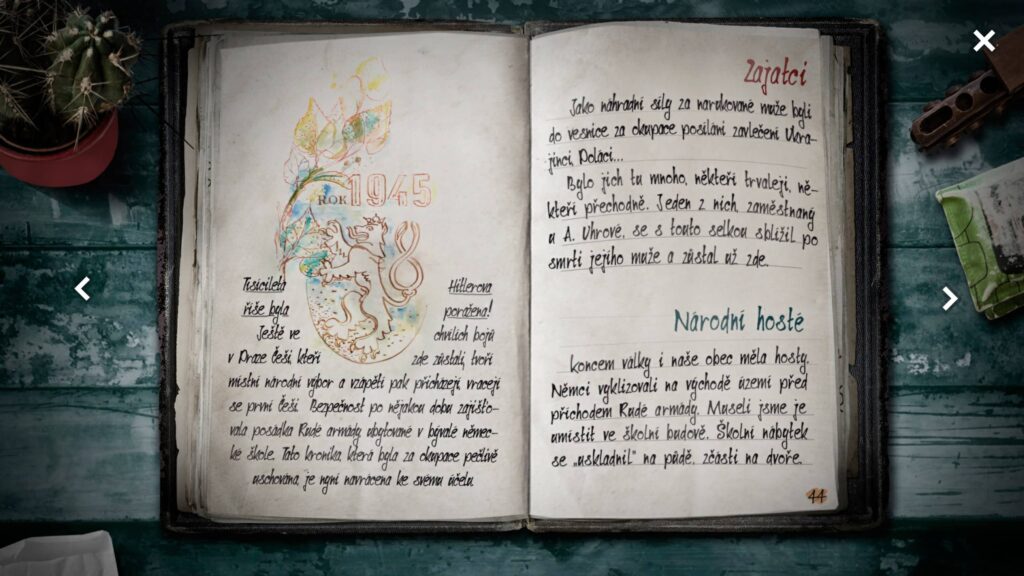 ROK 1945
Tisíciletá Hitlerova
říše byla poražena!
Ještě ve chvílích bojů
v Praze Češi, kteří zde zůstali, tvoří
místní národní výbor a vzápětí pak přicházejí, vracejí
se první Češi. Bezpečnost po nějakou dobu zajišťo-
vala posádka Rudé armády, ubytované v bývalé němec-
ké škole. Tato kronika, která byla za okupace pečlivě
uschována, je nyní navrácena ke svému účelu.
Zajatci
Jako náhradní síly za narukované muže byli
do vesnice za okupace posíláni zavlečení Ukra-
jinci, Poláci...
Bylo jich tu mnoho, někteří trvaleji, ně-
kteří přechodně. Jeden z nich, zaměstnaný
u A. Uhrové, se s touto selkou sblížil po
smrti jejího muže a zůstal už zde.
Národní hosté
koncem války i naše obec měla hosty.
Němci vyklizovali na východě území před
příchodem Rudé armády. Museli jsme je
umístit ve školní budově. Školní nábytek
se „uskladnil" na půdě, zčásti na dvoře.
44